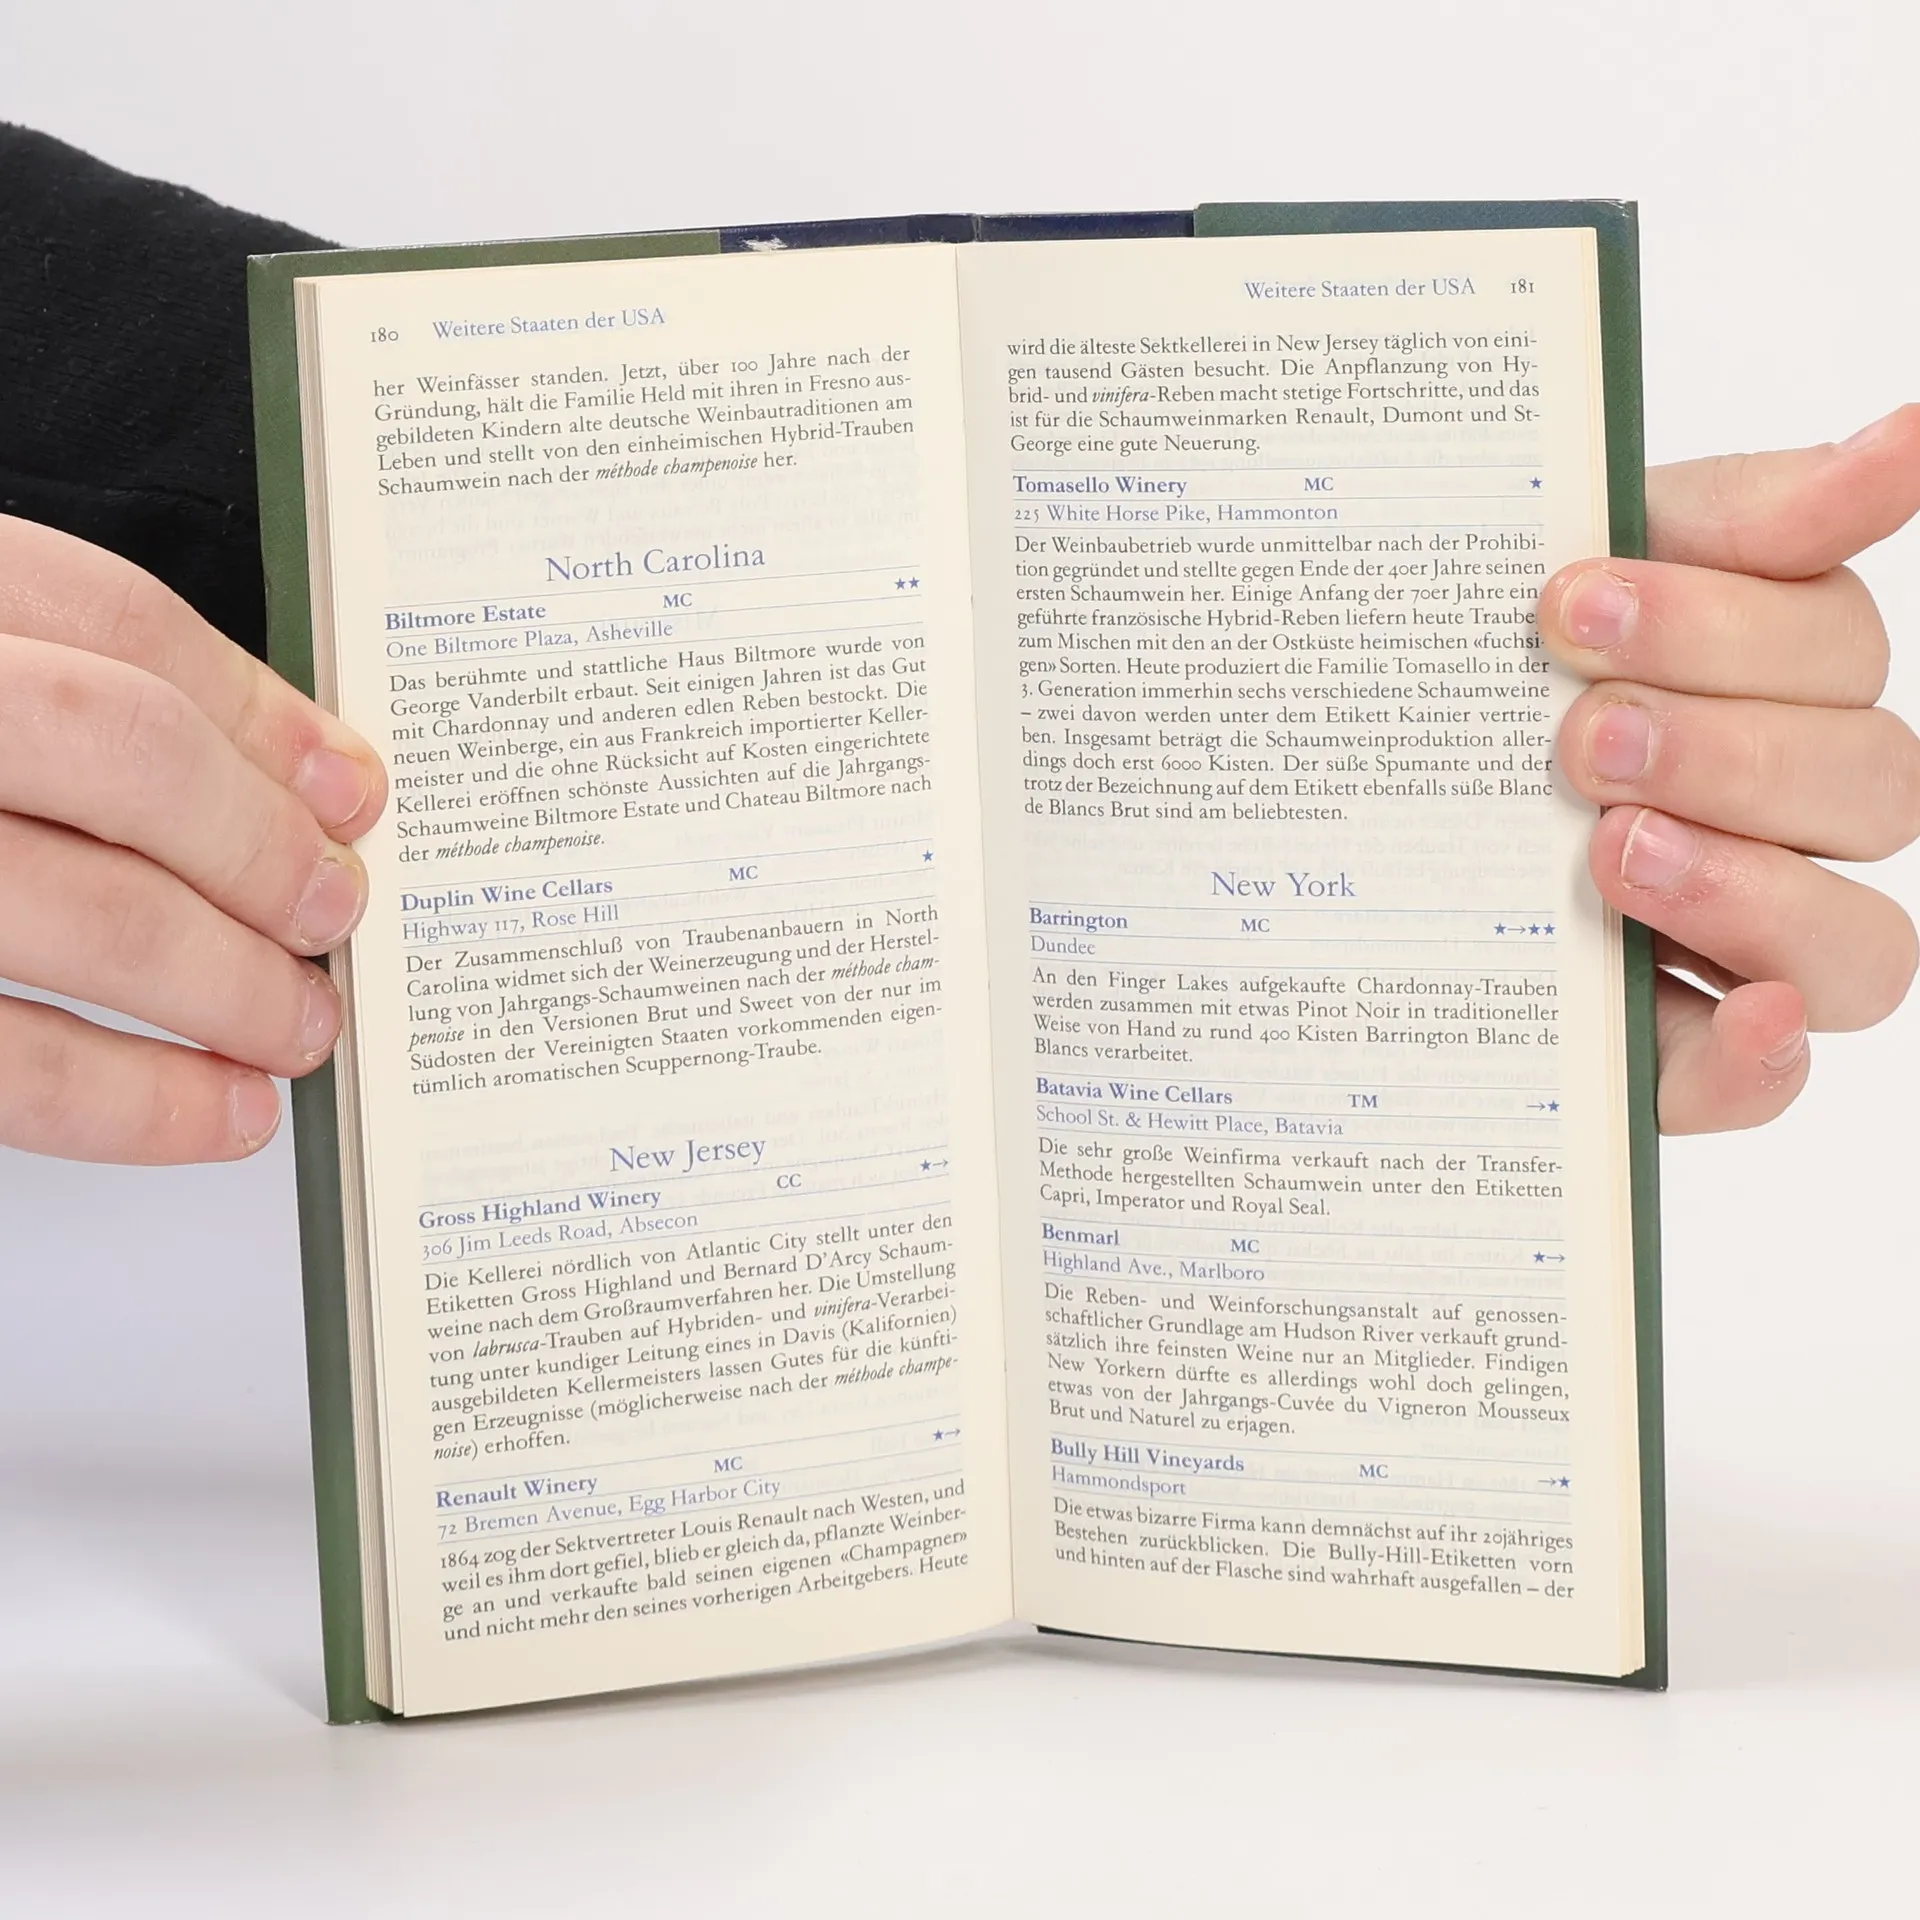 180 Weitere Staaten der USA
her Weinfässer standen. Jetzt, über 100 Jahre nach der
Gründung, hält die Familie Held mit ihren in Fresno aus-
gebildeten Kindern alte deutsche Weinbautraditionen am
Leben und stellt von den einheimischen Hybrid-Trauben
Schaumwein nach der méthode champenoise her.
North Carolina
Biltmore Estate MC ★★
One Biltmore Plaza, Asheville
Das berühmte und stattliche Haus Biltmore wurde von
George Vanderbilt erbaut. Seit einigen Jahren ist das Gut
mit Chardonnay und anderen edlen Reben bestockt. Die
neuen Weinberge, ein aus Frankreich importierter Keller-
meister und die ohne Rücksicht auf Kosten eingerichtete
Kellerei eröffnen schönste Aussichten auf die Jahrgangs-
Schaumweine Biltmore Estate und Chateau Biltmore nach
der méthode champenoise.
Duplin Wine Cellars MC ★
Highway 117, Rose Hill
Der Zusammenschluß von Traubenanbauern in North
Carolina widmet sich der Weinerzeugung und der Herstel-
lung von Jahrgangs-Schaumweinen nach der méthode cham-
penoise in den Versionen Brut und Sweet von der nur im
Südosten der Vereinigten Staaten vorkommenden eigen-
tümlich aromatischen Scuppernong-Traube.
New Jersey
Gross Highland Winery CC ★→
306 Jim Leeds Road, Absecon
Die Kellerei nördlich von Atlantic City stellt unter den
Etiketten Gross Highland und Bernard D'Arcy Schaum-
weine nach dem Großraumverfahren her. Die Umstellung
von labrusca-Trauben auf Hybriden- und vinifera-Verarbei-
tung unter kundiger Leitung eines in Davis (Kalifornien)
ausgebildeten Kellermeisters lassen Gutes für die künfti-
gen Erzeugnisse (möglicherweise nach der méthode champe-
noise) erhoffen.
Renault Winery MC ★→
72 Bremen Avenue, Egg Harbor City
1864 zog der Sektvertreter Louis Renault nach Westen, und
weil es ihm dort gefiel, blieb er gleich da, pflanzte Weinber-
ge an und verkaufte bald seinen eigenen «Champagner»
und nicht mehr den seines vorherigen Arbeitgebers. Heute
Weitere Staaten der USA 181
wird die älteste Sektkellerei in New Jersey täglich von eini-
gen tausend Gästen besucht. Die Anpflanzung von Hy-
brid- und vinifera-Reben macht stetige Fortschritte, und das
ist für die Schaumweinmarken Renault, Dumont und St-
George eine gute Neuerung.
Tomasello Winery MC ★
225 White Horse Pike, Hammonton
Der Weinbaubetrieb wurde unmittelbar nach der Prohibi-
tion gegründet und stellte gegen Ende der 40er Jahre seinen
ersten Schaumwein her. Einige Anfang der 70er Jahre ein-
geführte französische Hybrid-Reben liefern heute Traube
zum Mischen mit den an der Ostküste heimischen «fuchsi-
gen» Sorten. Heute produziert die Familie Tomasello in der
3. Generation immerhin sechs verschiedene Schaumweine
– zwei davon werden unter dem Etikett Kainier vertrie-
ben. Insgesamt beträgt die Schaumweinproduktion aller-
dings doch erst 6000 Kisten. Der süße Spumante und der
trotz der Bezeichnung auf dem Etikett ebenfalls süße Blanc
de Blancs Brut sind am beliebtesten.
New York
Barrington MC ★→★★
Dundee
An den Finger Lakes aufgekaufte Chardonnay-Trauben
werden zusammen mit etwas Pinot Noir in traditioneller
Weise von Hand zu rund 400 Kisten Barrington Blanc de
Blancs verarbeitet.
Batavia Wine Cellars TM →★
School St. & Hewitt Place, Batavia
Die sehr große Weinfirma verkauft nach der Transfer-
Methode hergestellten Schaumwein unter den Etiketten
Capri, Imperator und Royal Seal.
Benmarl MC ★→
Highland Ave., Marlboro
Die Reben- und Weinforschungsanstalt auf genossen-
schaftlicher Grundlage am Hudson River verkauft grund-
sätzlich ihre feinsten Weine nur an Mitglieder. Findigen
New Yorkern dürfte es allerdings wohl doch gelingen,
etwas von der Jahrgangs-Cuvée du Vigneron Mousseux
Brut und Naturel zu erjagen.
Bully Hill Vineyards MC →★
Hammondsport
Die etwas bizarre Firma kann demnächst auf ihr 20jähriges
Bestehen zurückblicken. Die Bully-Hill-Etiketten vorn
und hinten auf der Flasche sind wahrhaft ausgefallen – der